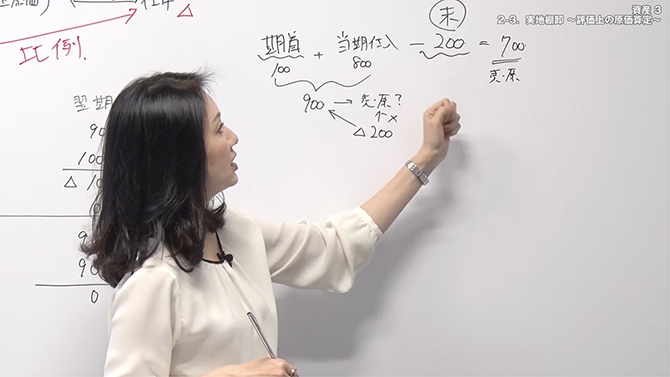 資産 3
2-3. 実地棚卸 〜評価上の原価算定〜
末
期首 + 当期仕入 - 200 = 700
100 800 売・原
900 → 売・原?
↑×
△200
△
比例
翌期
90
100
△ 10
0
9
90
0